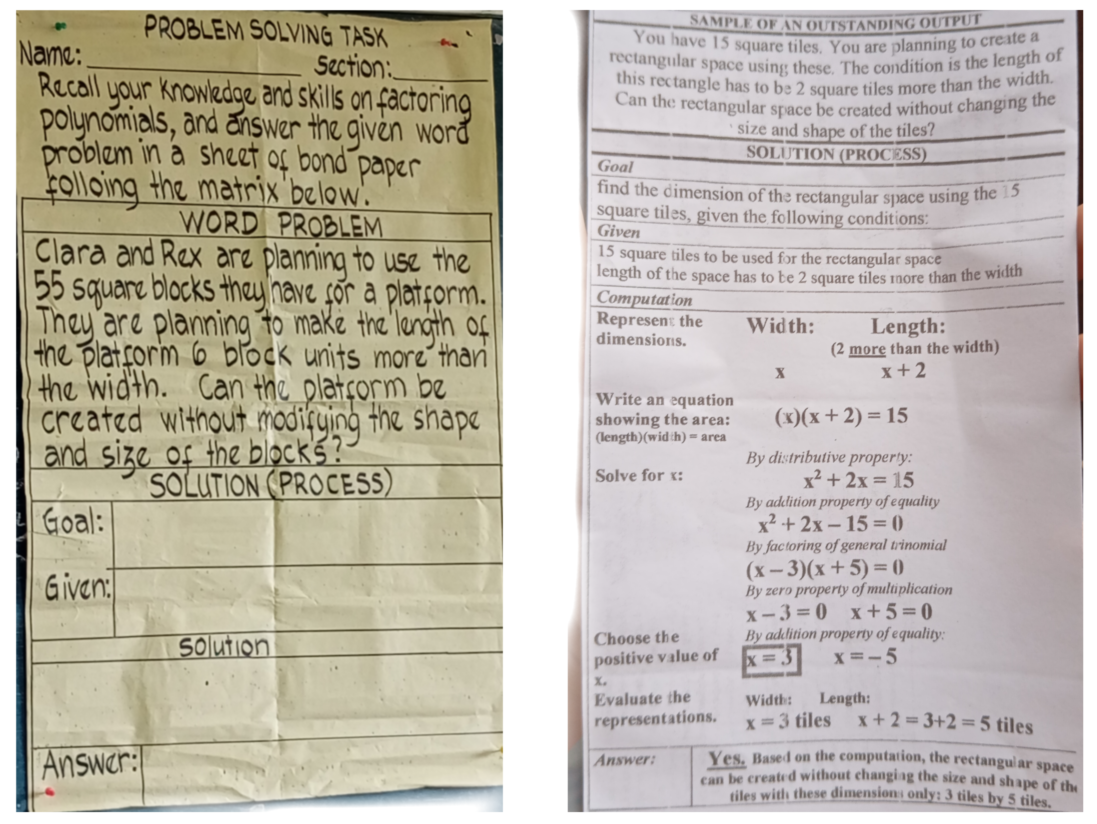 PROBLEM SOLVING TASK
Name: ____________ Section: ________
Recall your knowledge and skills on factoring
polynomials, and answer the given word
problem in a sheet of bond paper
folloing the matrix below.
WORD PROBLEM
Clara and Rex are planning to use the
55 square blocks they have for a platform.
They are planning to make the length of
the platform 6 block units more than
the width. Can the platform be
created without modifying the shape
and size of the blocks?
SOLUTION (PROCESS)
Goal:
Given:
Solution
Answer:
SAMPLE OF AN OUTSTANDING OUTPUT
You have 15 square tiles. You are planning to create a
rectangular space using these. The condition is the length of
this rectangle has to be 2 square tiles more than the width.
Can the rectangular space be created without changing the
size and shape of the tiles?
SOLUTION (PROCESS)
Goal
find the dimension of the rectangular space using the 15
square tiles, given the following conditions:
Given
15 square tiles to be used for the rectangular space
length of the space has to be 2 square tiles more than the width
Computation
Represent the
dimensions.
Width: Length:
(2 more than the width)
x x + 2
Write an equation
showing the area:
(length)(width) = area
(x)(x + 2) = 15
Solve for x:
By distributive property:
x² + 2x = 15
By addition property of equality
x² + 2x – 15 = 0
By factoring of general trinomial
(x – 3)(x + 5) = 0
By zero property of multiplication
x – 3 = 0 x + 5 = 0
Choose the
positive value of
x.
By addition property of equality:
x = 3 x = – 5
Evaluate the
representations.
Width: Length:
x = 3 tiles x + 2 = 3+2 = 5 tiles
Answer:
Yes. Based on the computation, the rectangular space
can be created without changing the size and shape of the
tiles with these dimensions only: 3 tiles by 5 tiles.